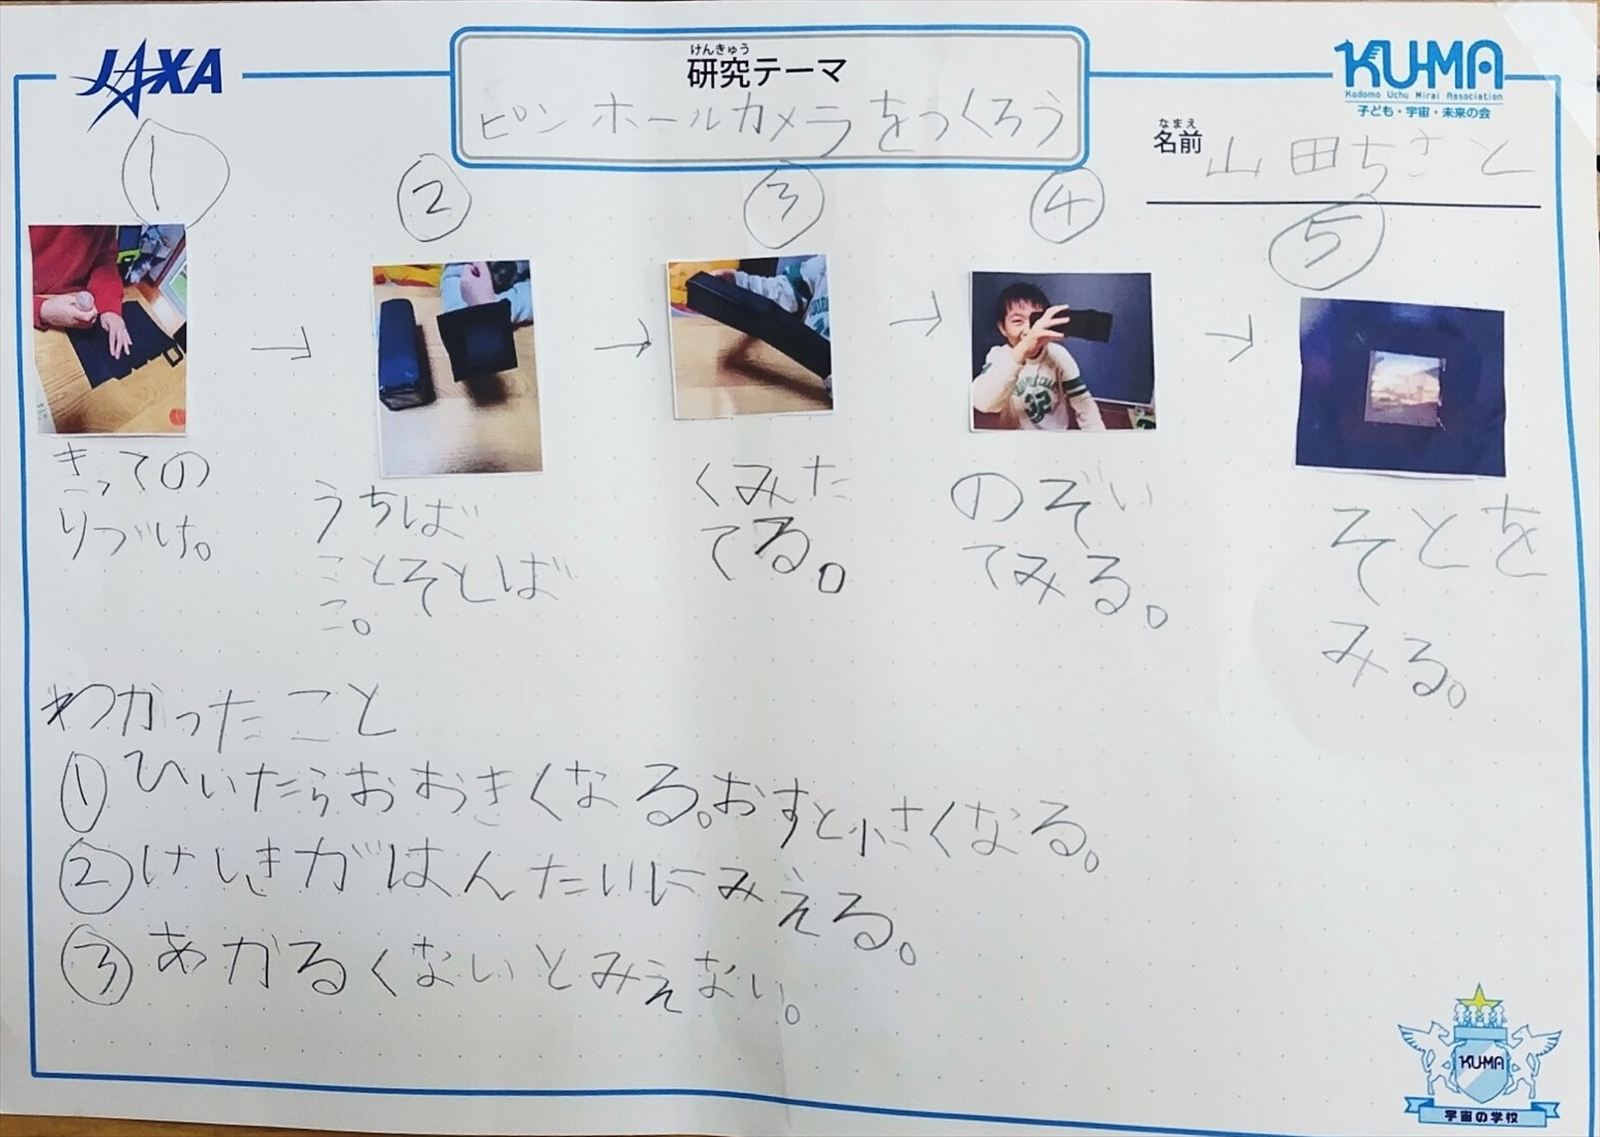 JAXA
けんきゅう
研究テーマ
ピンホールカメラをつくろう
KU-MA
Kodomo Uchu Mirai Association
子ども・宇宙・未来の会
なまえ
名前 山田ちさと
①
②
③
④
⑤
きっての
りづけ。
うちば
ことそとば
こ。
くみた
てる。
のぞい
てみる。
そとを
みる。
わかったこと
①ひいたらおおきくなる。おすと小さくなる。
②けしきがはんたいにみえる。
③あかるくないとみえない。
KU-MA
宇宙の学校